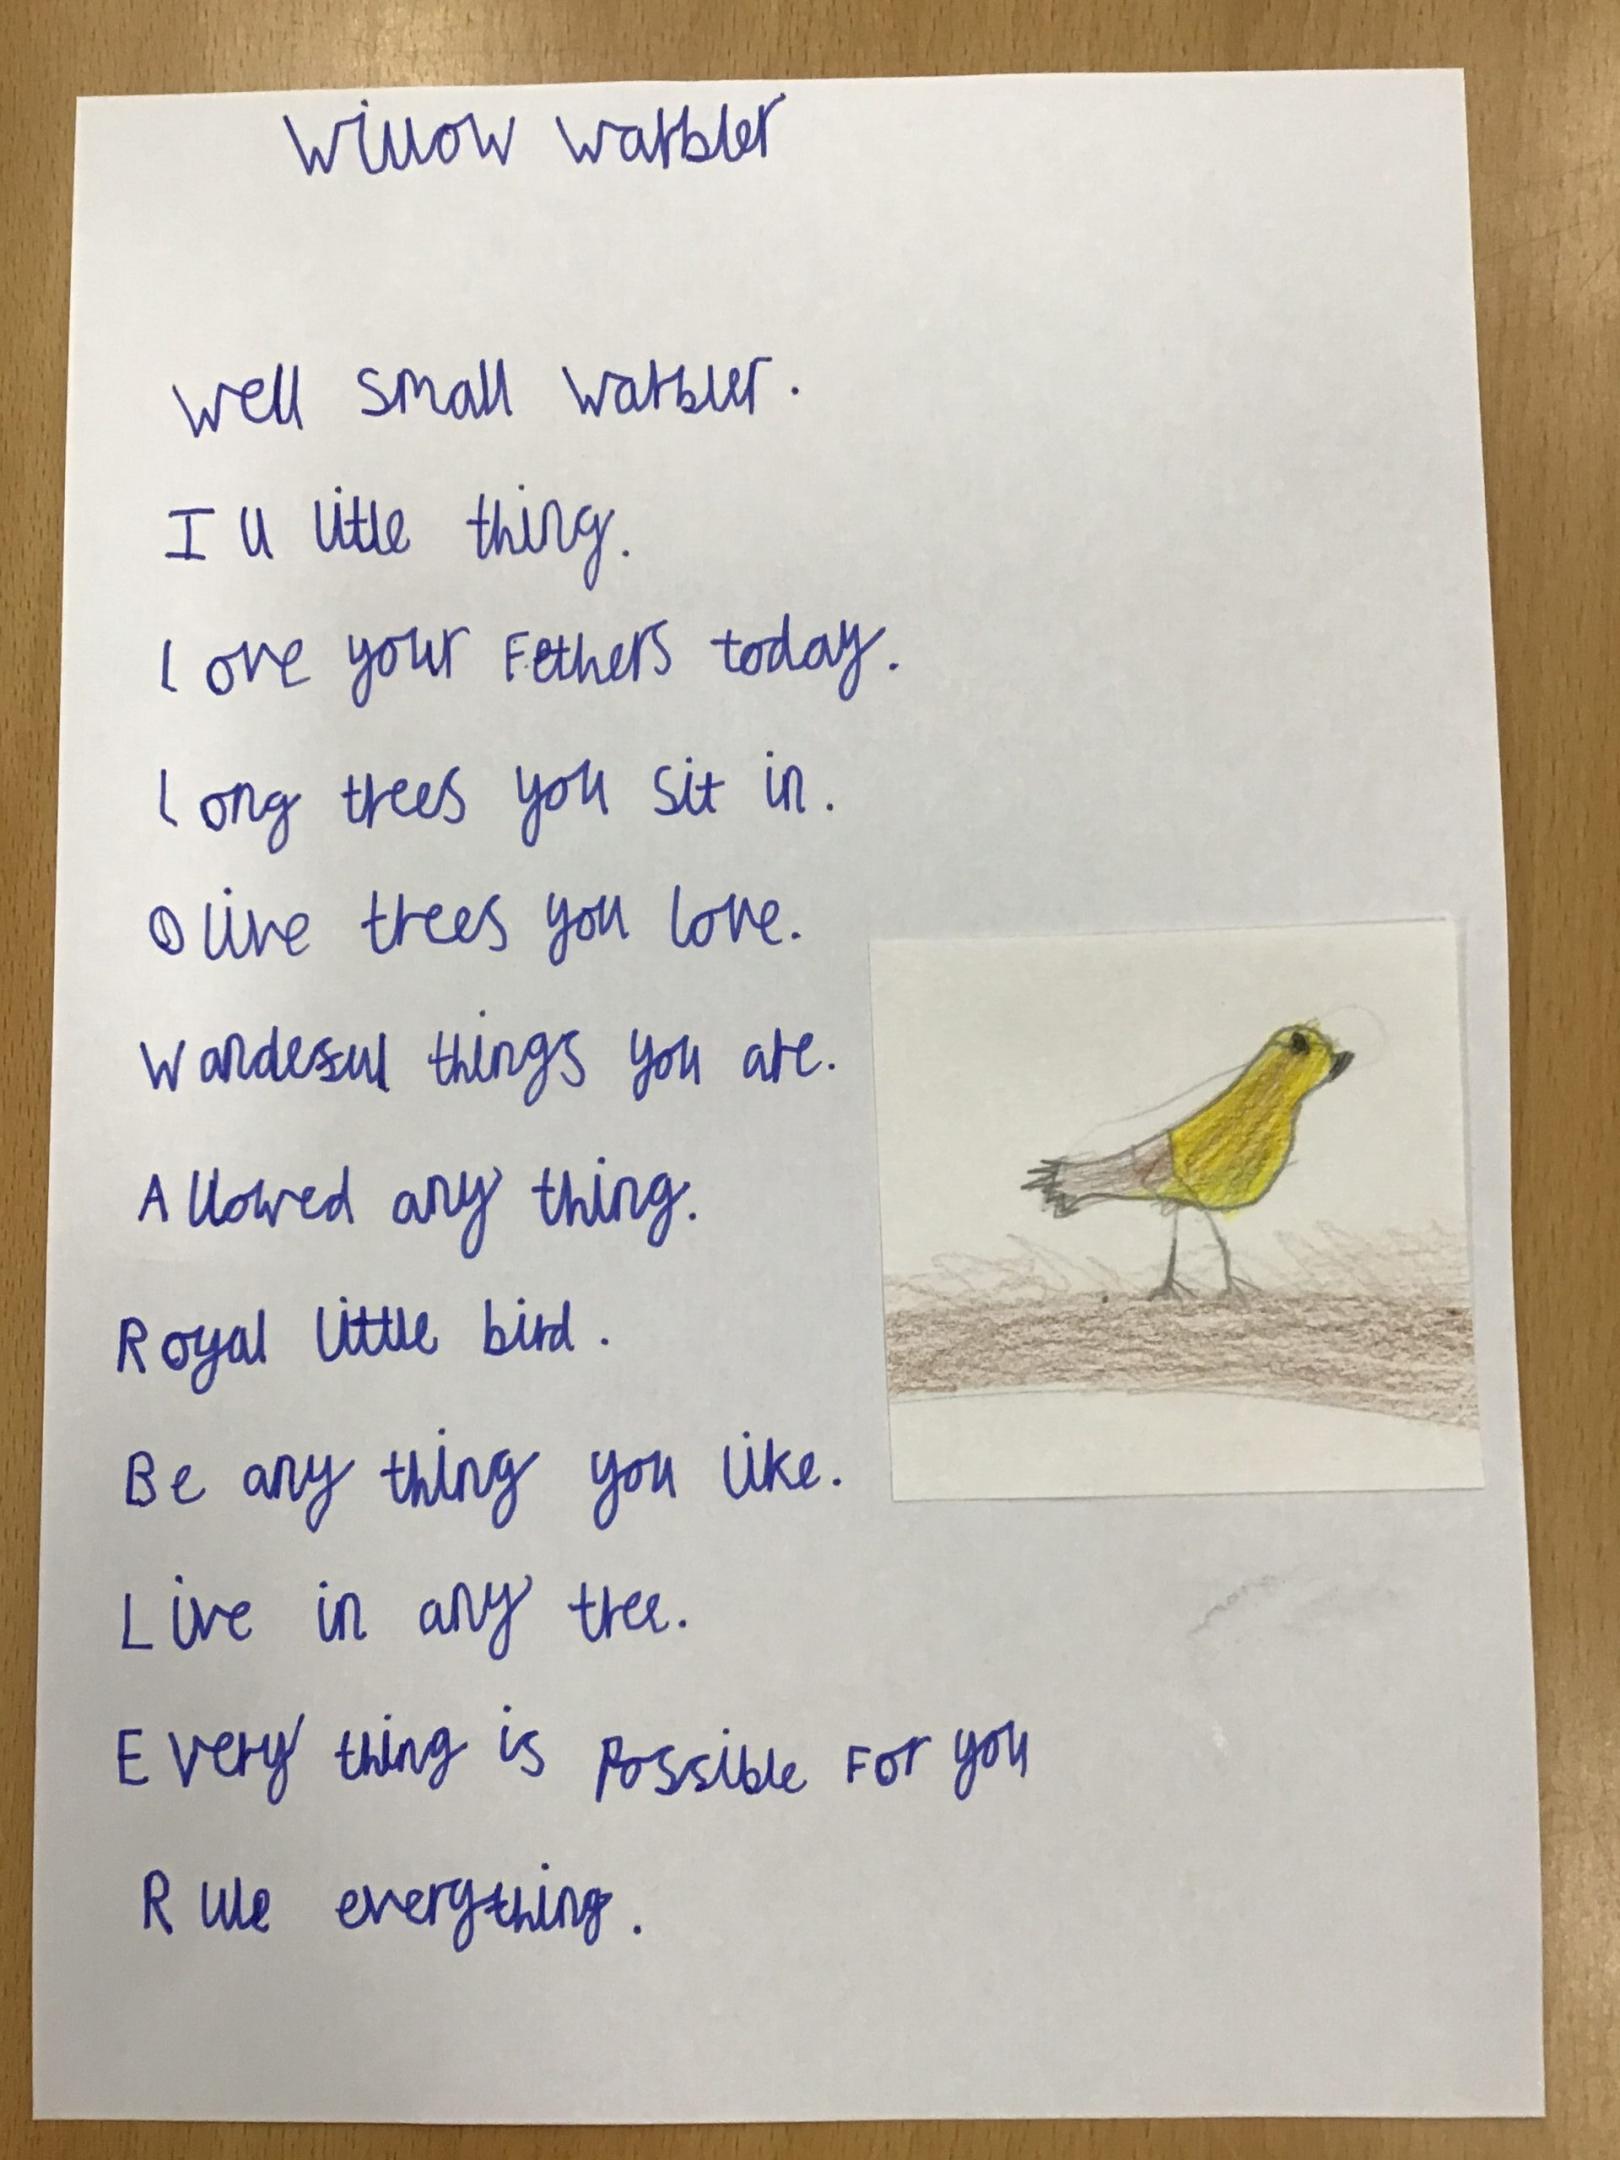 Willow Warbler
Well small Warbler.
I ll little thing.
love your Fethers today.
long trees you sit in.
Olive trees you love.
Wandesul things you are.
Allowed any thing.
Royal little bird.
Be any thing you like.
Live in any tree.
Every thing is Possible For you
Rule everything.